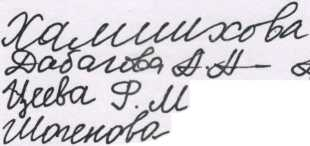 Хамшихова
Дабагова А.Н
Цеева Р.М
Шогенова